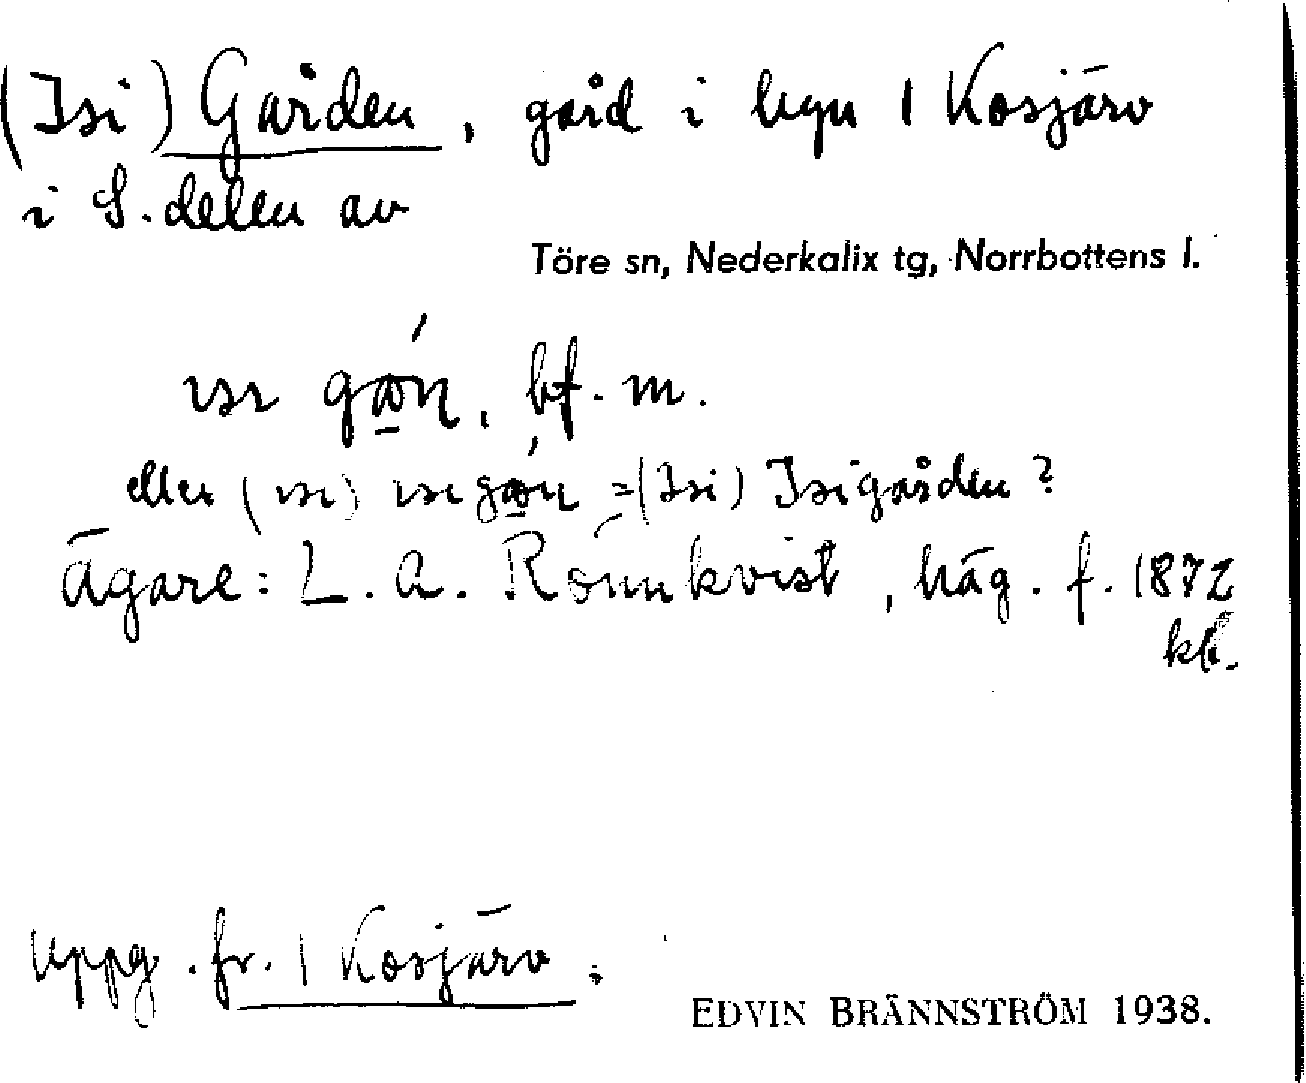 (Isi) Gården, gård i byn 1 Kosjärv
i S. delen av
Töre sn, Nederkalix tg, Norrbottens l.
ɪsɪ gɷ́ɳ, bf. m.
eller (ɪsɪ) ɪsɪgɷ́ɳ =(Isi) Isigården?
Ägare: L. A. Rönnkvist, häg. f. 1872
Uppg. fr. 1 Kosjärv.
EDVIN BRÄNNSTRÖM 1938.